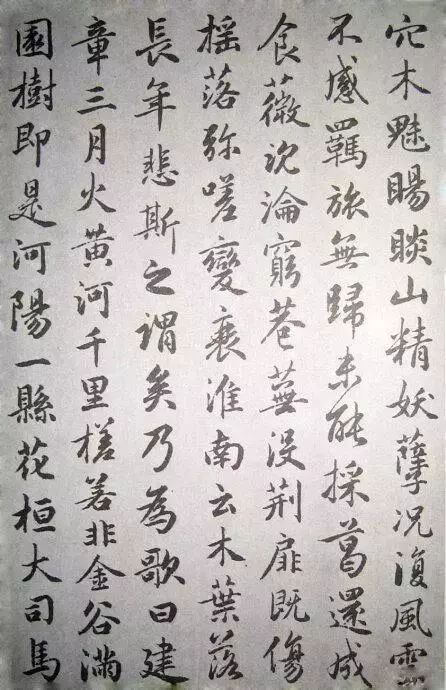 穴木魅睗睒山精妖孽況復風雲
不感羈旅無歸未能採葛還成
食薇沉淪窮巷蕪沒荊扉既傷
搖落弥嗟變衰淮南云木葉落
長年悲斯之謂矣乃為歌曰建
章三月火黃河千里槎若非金谷滿
園樹即是河陽一縣花桓大司馬